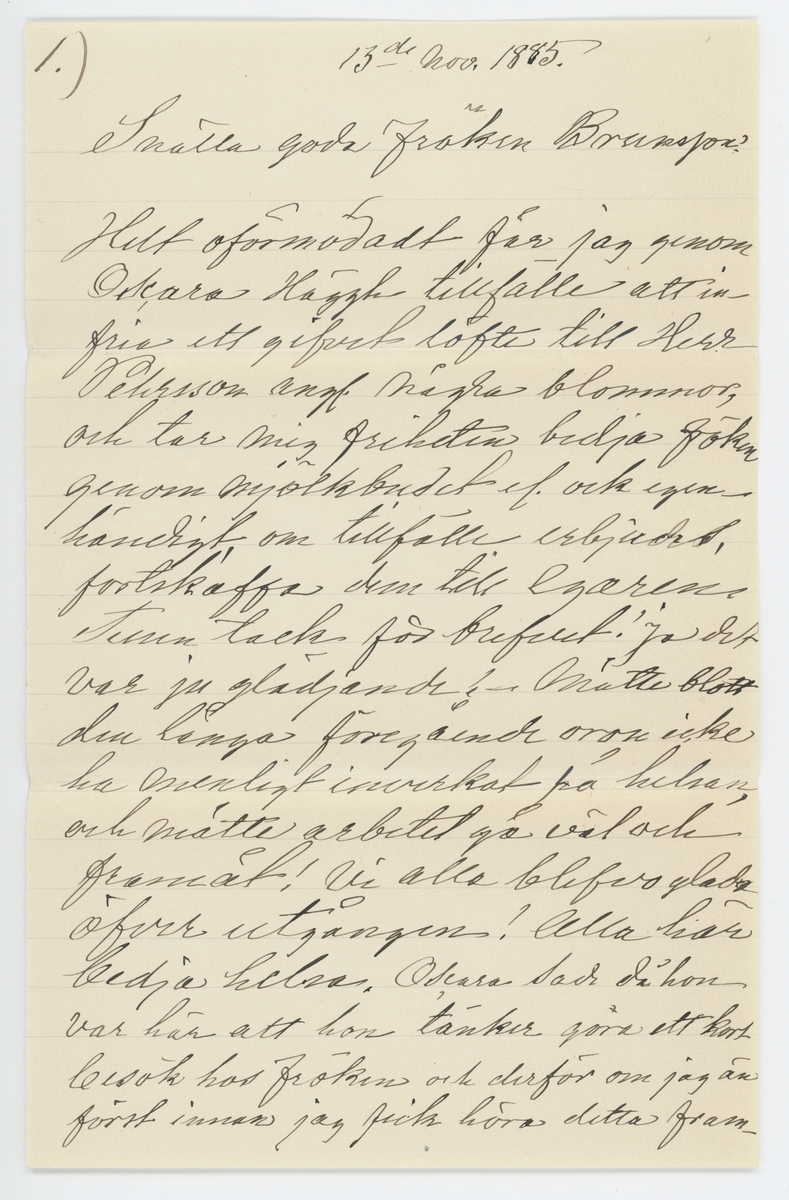 1.)
13de Nov. 1885.
Snälla goda fröken
Helt oförmodadt får jag genom
Oscara Häggh tillfälle att in-
fria ett gifvet löfte till Herr
Petersson ang. några blommor,
och tar mig friheten bedja fröken
genom mjölkbudet el. ock egen-
händigt, om tillfälle erbjudes,
fortskaffa dem till egaren.
tack för brefvet! Ja det
var ju glädjande! — Måtte blott
den långa föregående oron icke
ha menligt inverkat på helsan,
och måtte arbetet gå väl och
framåt! Vi alla blefvo glada
öfver utgången! Alla här
bedja helsa. Oscara sade då hon
var här att hon tänker göra ett kort
besök hos fröken och derför om jag än
först innan jag fick höra detta fram-